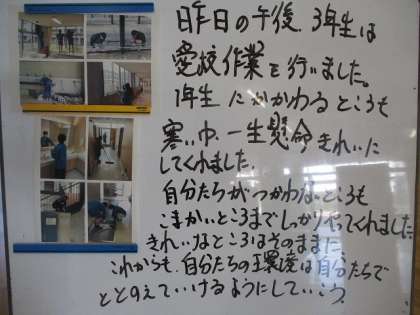 昨日の午後、3年生は
愛校作業を行いました。
1年生にかかわるところも
寒い中、一生懸命きれいに
してくれました。
自分たちがつかわないところも
こまかいところまでしっかりやってくれました
きれいなところはそのままに、
これからも、自分たちの環境は自分たちで
ととのえていけるようにしていこう。